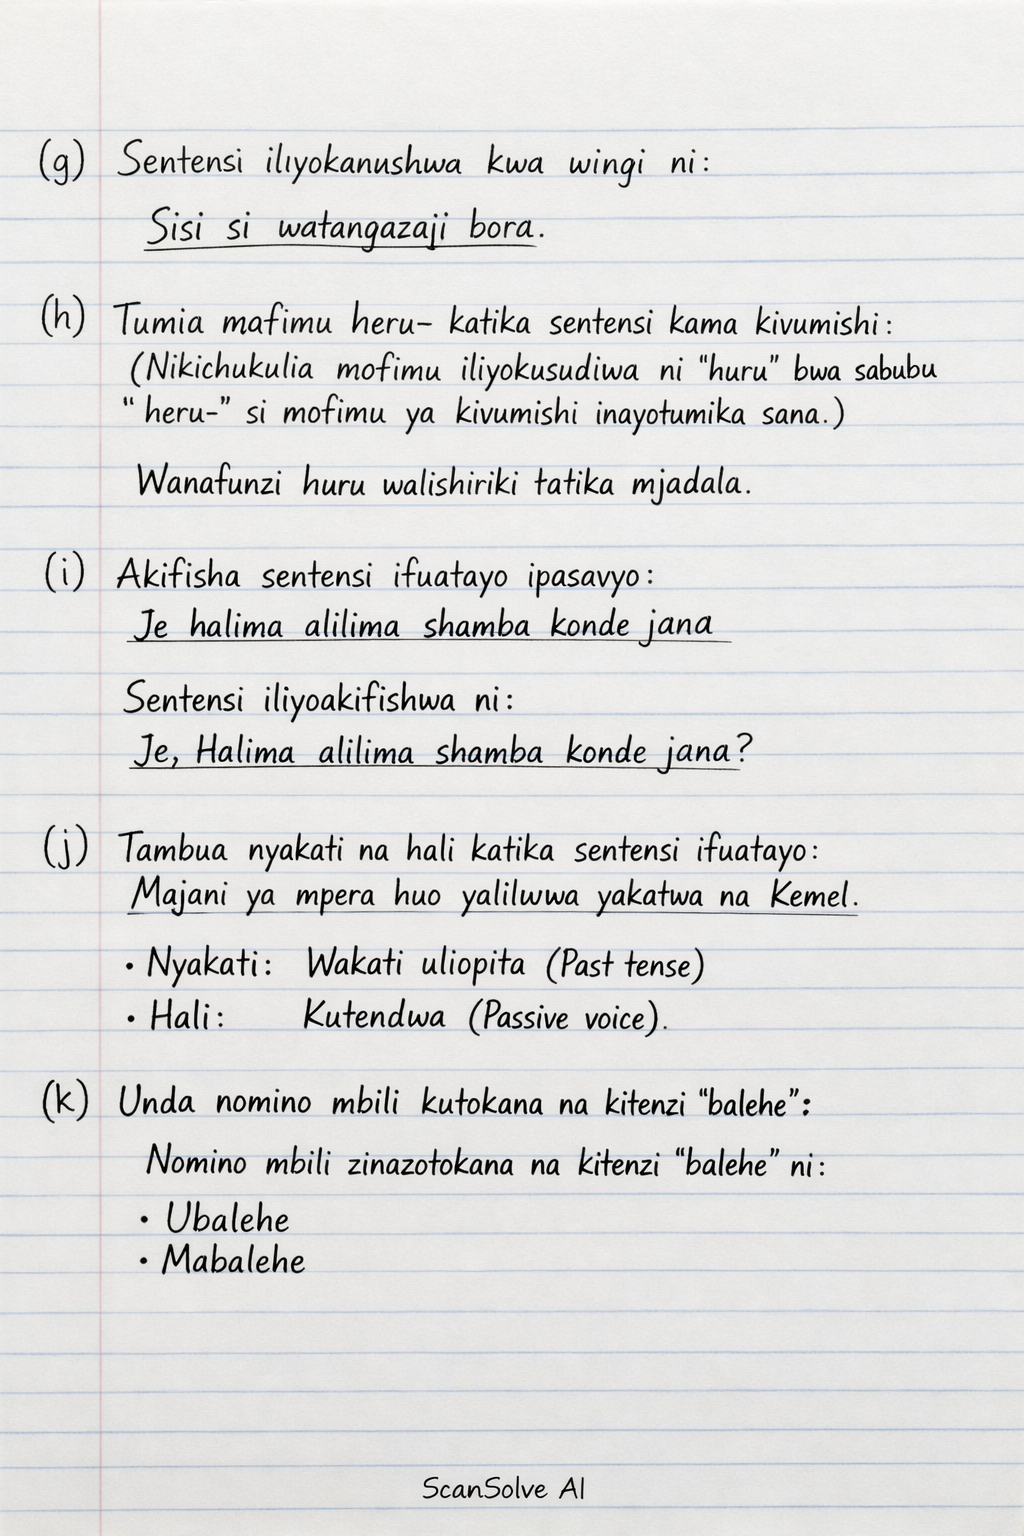 (g) Sentensi iliyokanushwa kwa wingi ni:
Sisi si watangazaji bora.
(h) Tumia mafimu heru- katika sentensi kama kivumishi:
(Nikichukulia mofimu iliyokusudiwa ni "huru" bwa sabubu
"heru-" si mofimu ya kivumishi inayotumika sana.)
Wanafunzi huru walishiriki tatika mjadala.
(i) Akifisha sentensi ifuatayo ipasavyo:
Je halima alilima shamba konde jana
Sentensi iliyoakifishwa ni:
Je, Halima alilima shamba konde jana?
(j) Tambua nyakati na hali katika sentensi ifuatayo:
Majani ya mpera huo yalilwwa yakatwa na Kemel.
• Nyakati: Wakati uliopita (Past tense)
• Hali: Kutendwa (Passive voice).
(k) Unda nomino mbili kutokana na kitenzi "balehe":
Nomino mbili zinazotokana na kitenzi "balehe" ni:
• Ubalehe
• Mabalehe
ScanSolve AI